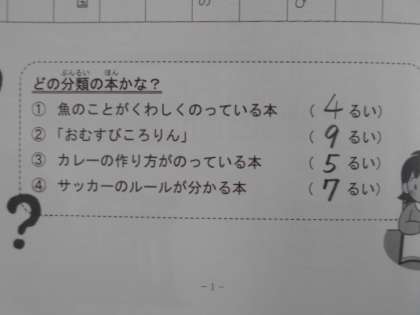 国 の び
ぶんるい ほん
どの分類の本かな？
① 魚のことがくわしくのっている本 （ 4 るい）
② 「おむすびころりん」 （ 9 るい）
③ カレーの作り方がのっている本 （ 5 るい）
④ サッカーのルールが分かる本 （ 7 るい）
?
－1－